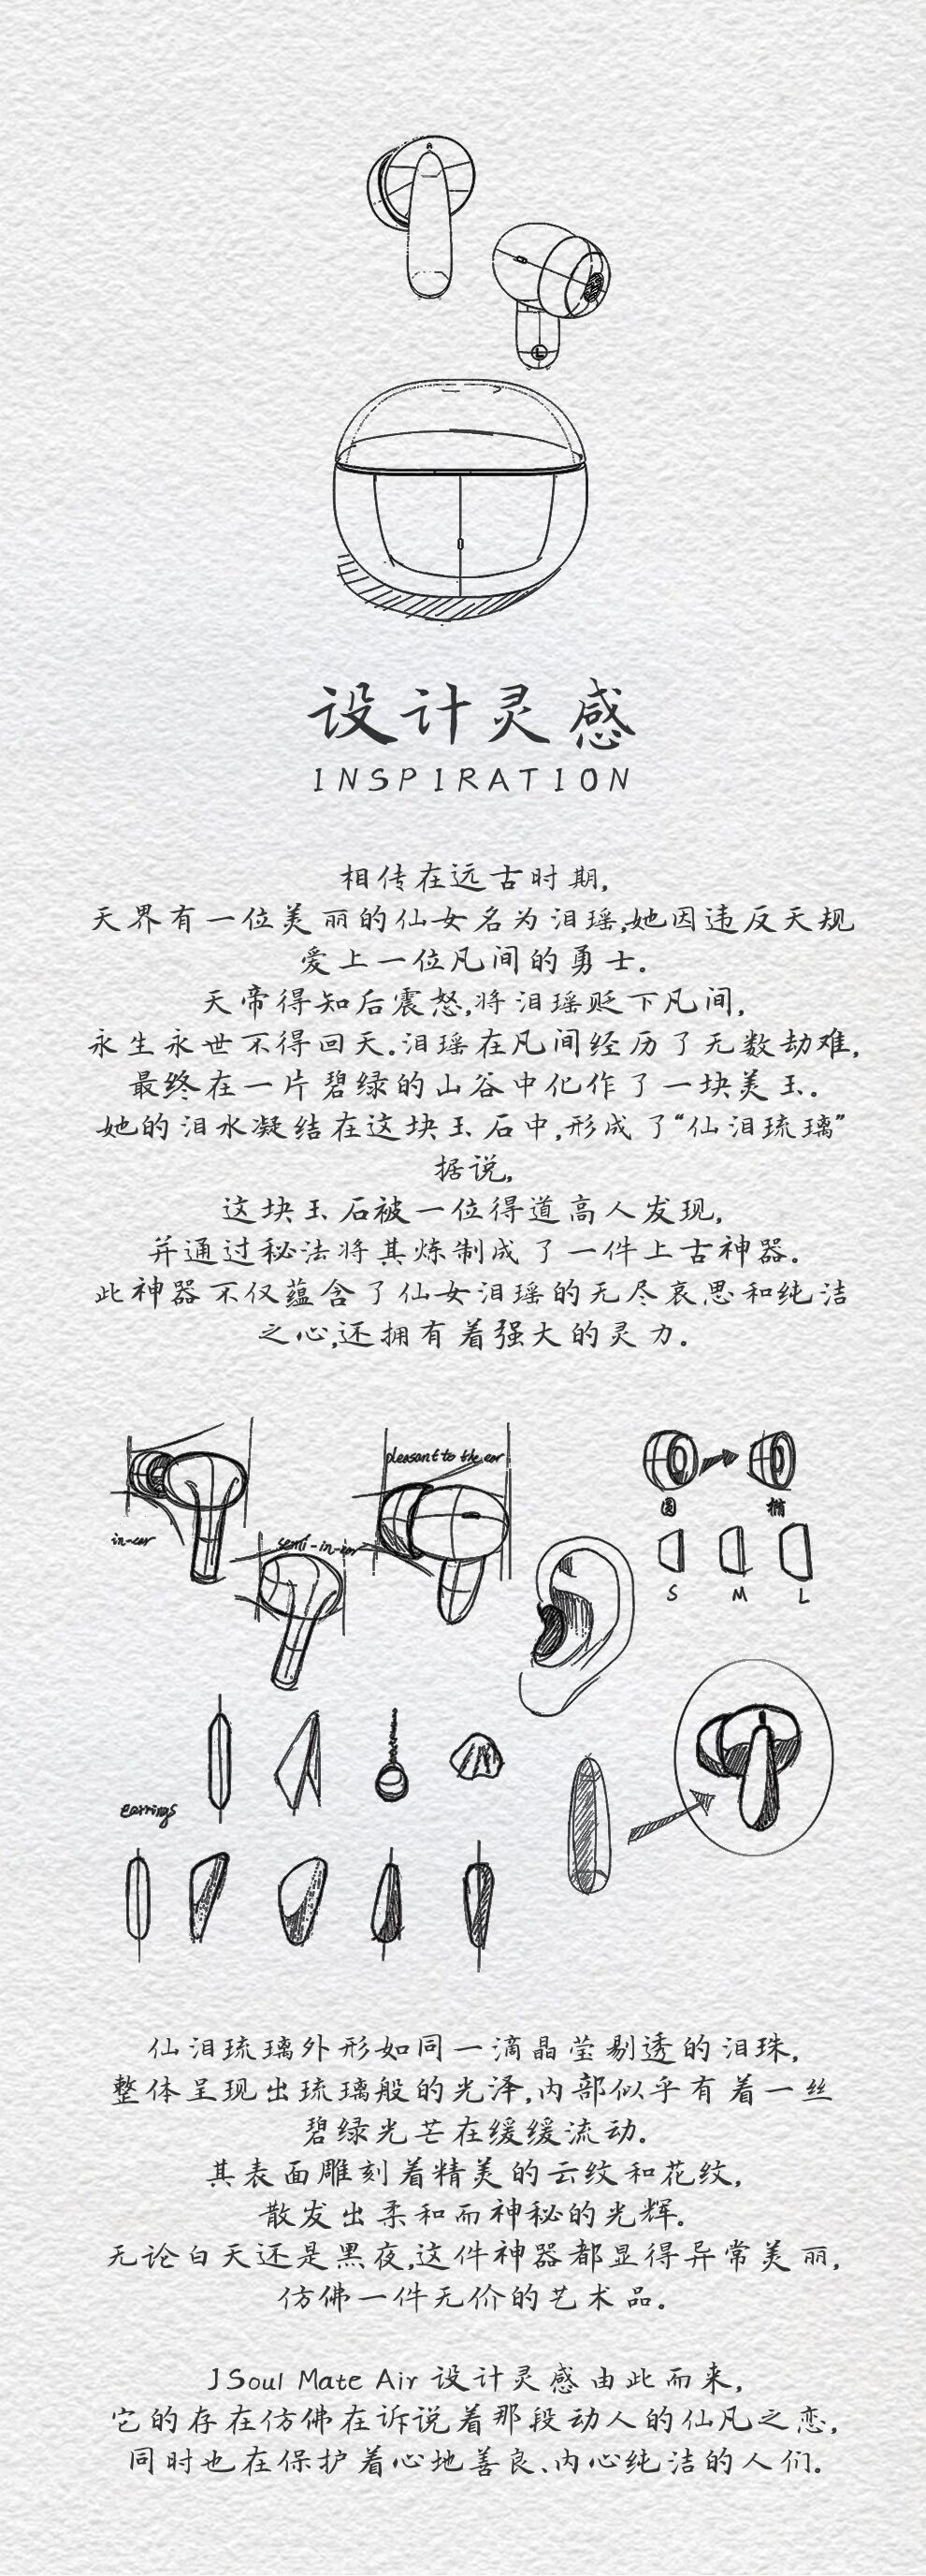 设计灵感
INSPIRATION
相传在远古时期,
天界有一位美丽的仙女名为泪瑶,她因违反天规
爱上一位凡间的勇士.
天帝得知后震怒,将泪瑶贬下凡间,
永生永世不得回天.泪瑶在凡间经历了无数劫难,
最终在一片碧绿的山谷中化作了一块美玉.
她的泪水凝结在这块玉石中,形成了“仙泪琉璃”
据说,
这块玉石被一位得道高人发现,
并通过秘法将其炼制成了一件上古神器.
此神器不仅蕴含了仙女泪瑶的无尽哀思和纯洁
之心,还拥有着强大的灵力.
pleasant to the ear
in-ear
semi-in-ear
圆 椭
S M L
earrings
仙泪琉璃外形如同一滴晶莹剔透的泪珠,
整体呈现出琉璃般的光泽,内部似乎有着一丝
碧绿光芒在缓缓流动.
其表面雕刻着精美的云纹和花纹,
散发出柔和而神秘的光辉.
无论白天还是黑夜,这件神器都显得异常美丽,
仿佛一件无价的艺术品.
JSoul Mate Air 设计灵感由此而来,
它的存在仿佛在诉说着那段动人的仙凡之恋,
同时也在保护着心地善良、内心纯洁的人们.
L